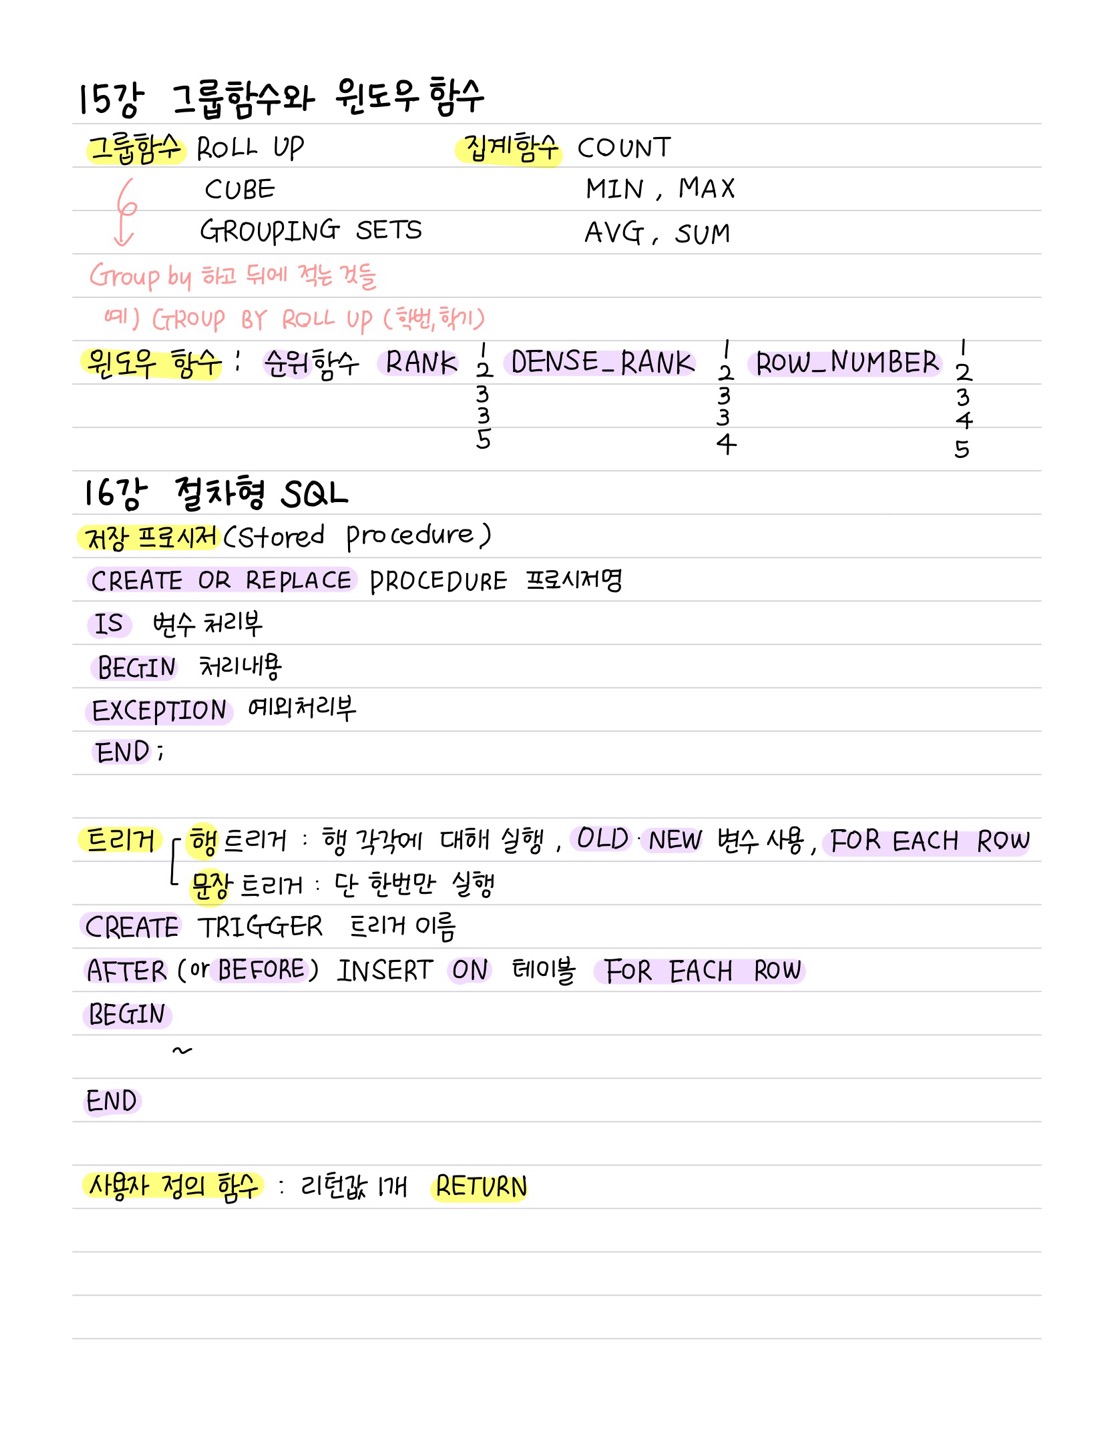 15강 그룹함수와 윈도우 함수
그룹함수 ROLL UP 집계함수 COUNT
CUBE MIN, MAX
GROUPING SETS AVG, SUM
Group by 하고 뒤에 적는 것들
예) GROUP BY ROLL UP (학번,학기)
윈도우 함수 : 순위함수 RANK 1 DENSE_RANK 1 ROW_NUMBER 1
2 2 2
3 3 3
3 3 4
5 4 5
16강 절차형 SQL
저장 프로시저 (Stored procedure)
CREATE OR REPLACE PROCEDURE 프로시저명
IS 변수 처리부
BEGIN 처리내용
EXCEPTION 예외처리부
END ;
트리거 행 트리거 : 행 각각에 대해 실행, OLD · NEW 변수 사용, FOR EACH ROW
문장 트리거 : 단 한번만 실행
CREATE TRIGGER 트리거 이름
AFTER (or BEFORE) INSERT ON 테이블 FOR EACH ROW
BEGIN
~
END
사용자 정의 함수 : 리턴값 1개 RETURN